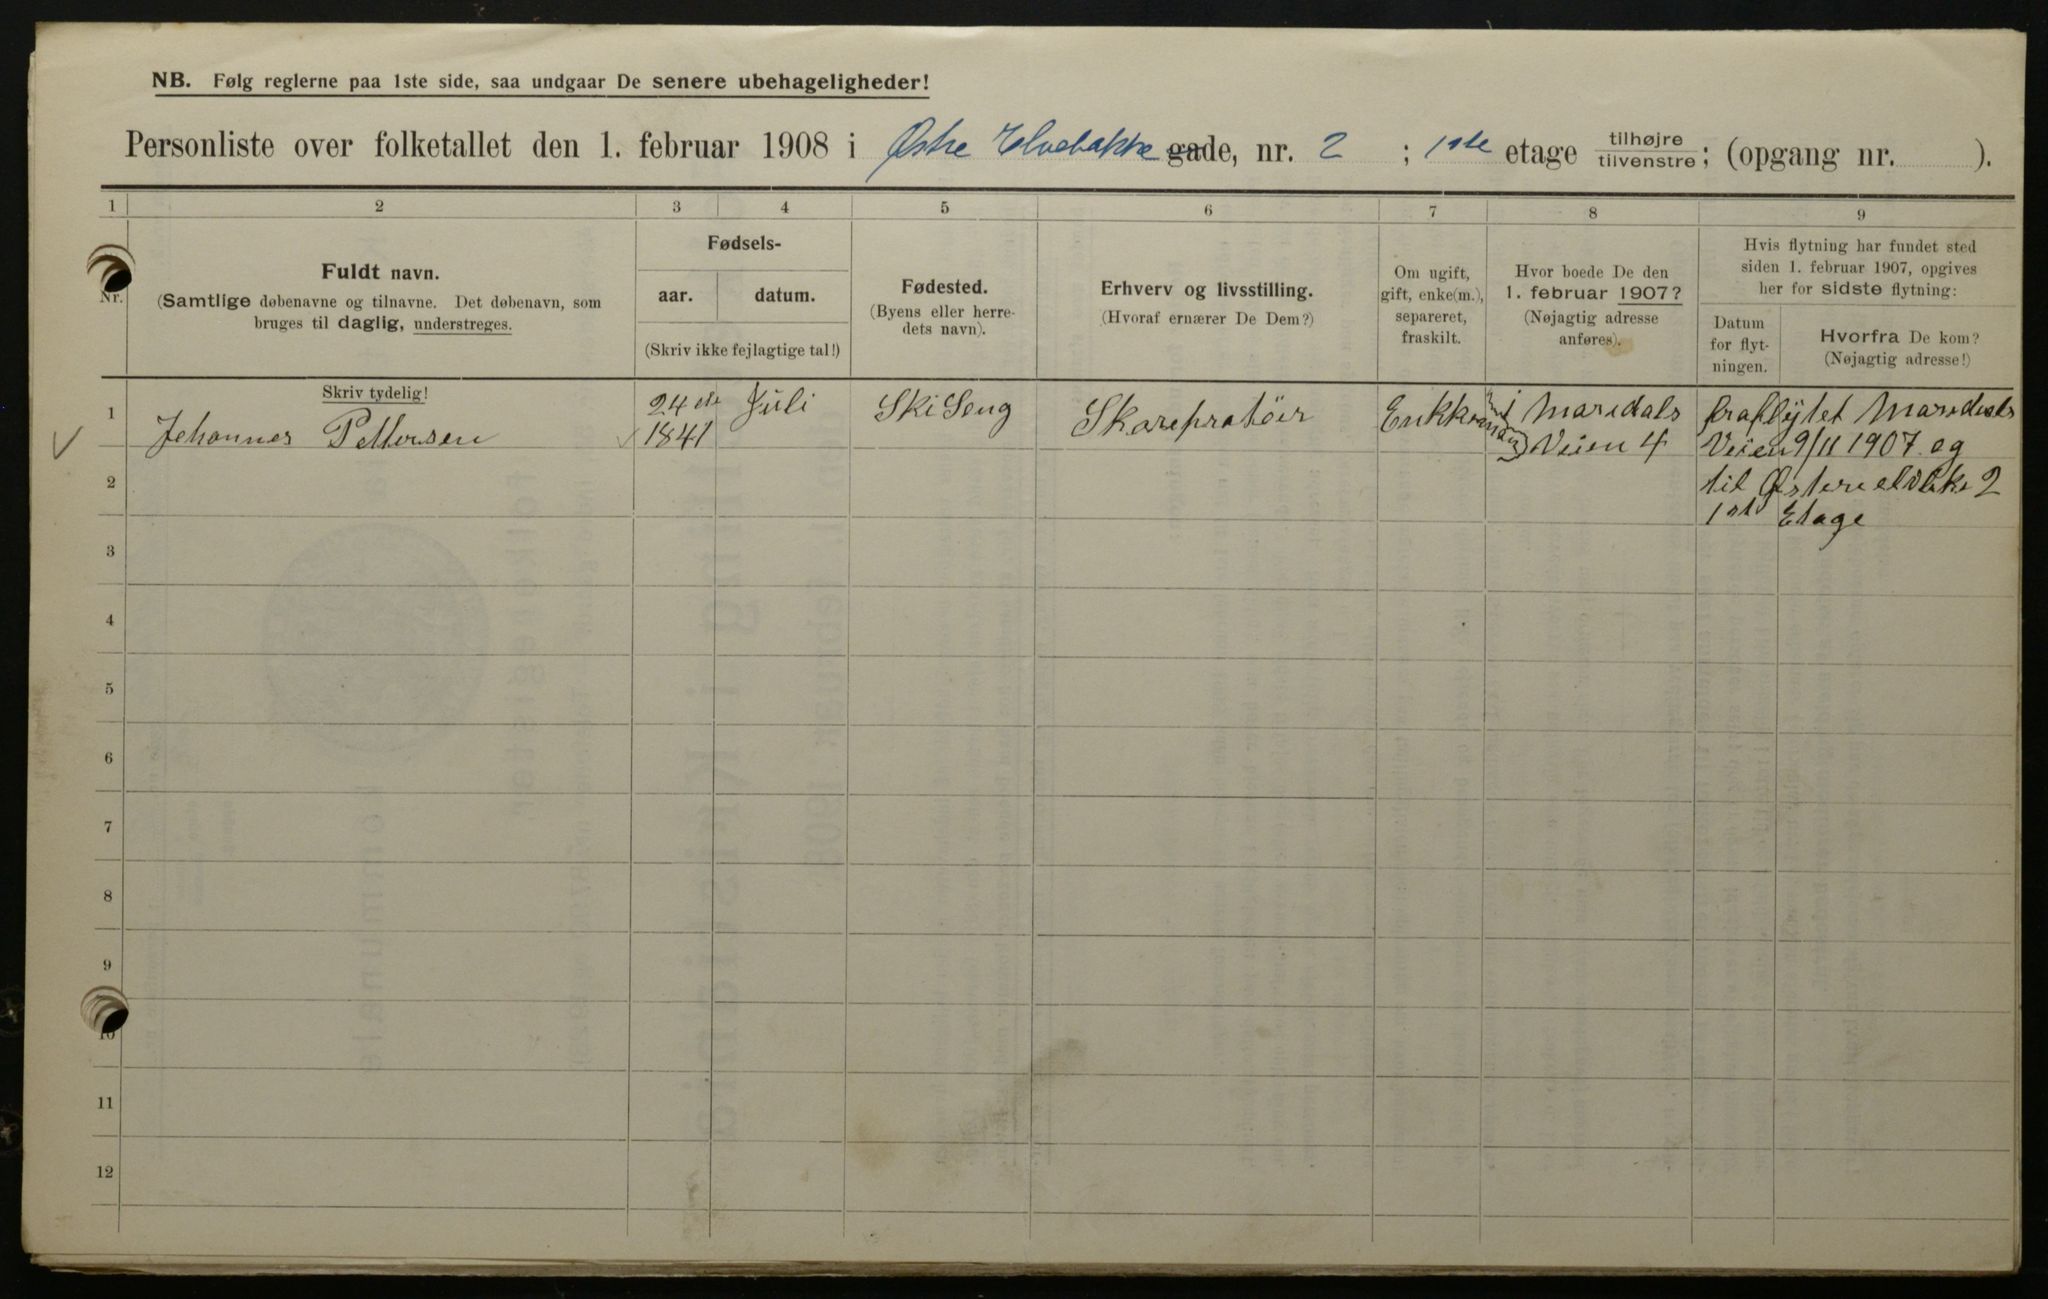 NB. Følg reglerne paa 1ste side, saa undgaar De senere ubehageligheder!
Personliste over folketallet den 1. februar 1908 i Østre Elvebakke gade, nr. 2 ; 1ste etage tilhøjre tilvenstre; (opgang nr. ).
1 2 3 4 5 6 7 8 9
Nr.
Fuldt navn.
(Samtlige døbenavne og tilnavne. Det døbenavn, som
bruges til daglig, understreges.
Skriv tydelig!
Fødsels-
aar. datum.
(Skriv ikke fejlagtige tal!)
Fødested.
(Byens eller herre-
dets navn).
Erhverv og livsstilling.
(Hvoraf ernærer De Dem?)
Om ugift,
gift, enke(m.),
separeret,
fraskilt.
Hvor boede De den
1. februar 1907?
(Nøjagtig adresse
anføres).
Hvis flytning har fundet sted
siden 1. februar 1907, opgives
her for sidste flytning:
Datum
for flyt-
ningen.
Hvorfra De kom?
(Nøjagtig adresse!)
1
Johannes Pettersen
24de Juli
1841
Ski Seng
Skoreparatør
Enkkemand
i Maridals
Veien 4
fraflytet Maridals
Veien 9/11 1907 og
til Østere elvbke 2
1ste Etage
2
3
4
5
6
7
8
9
10
11
12